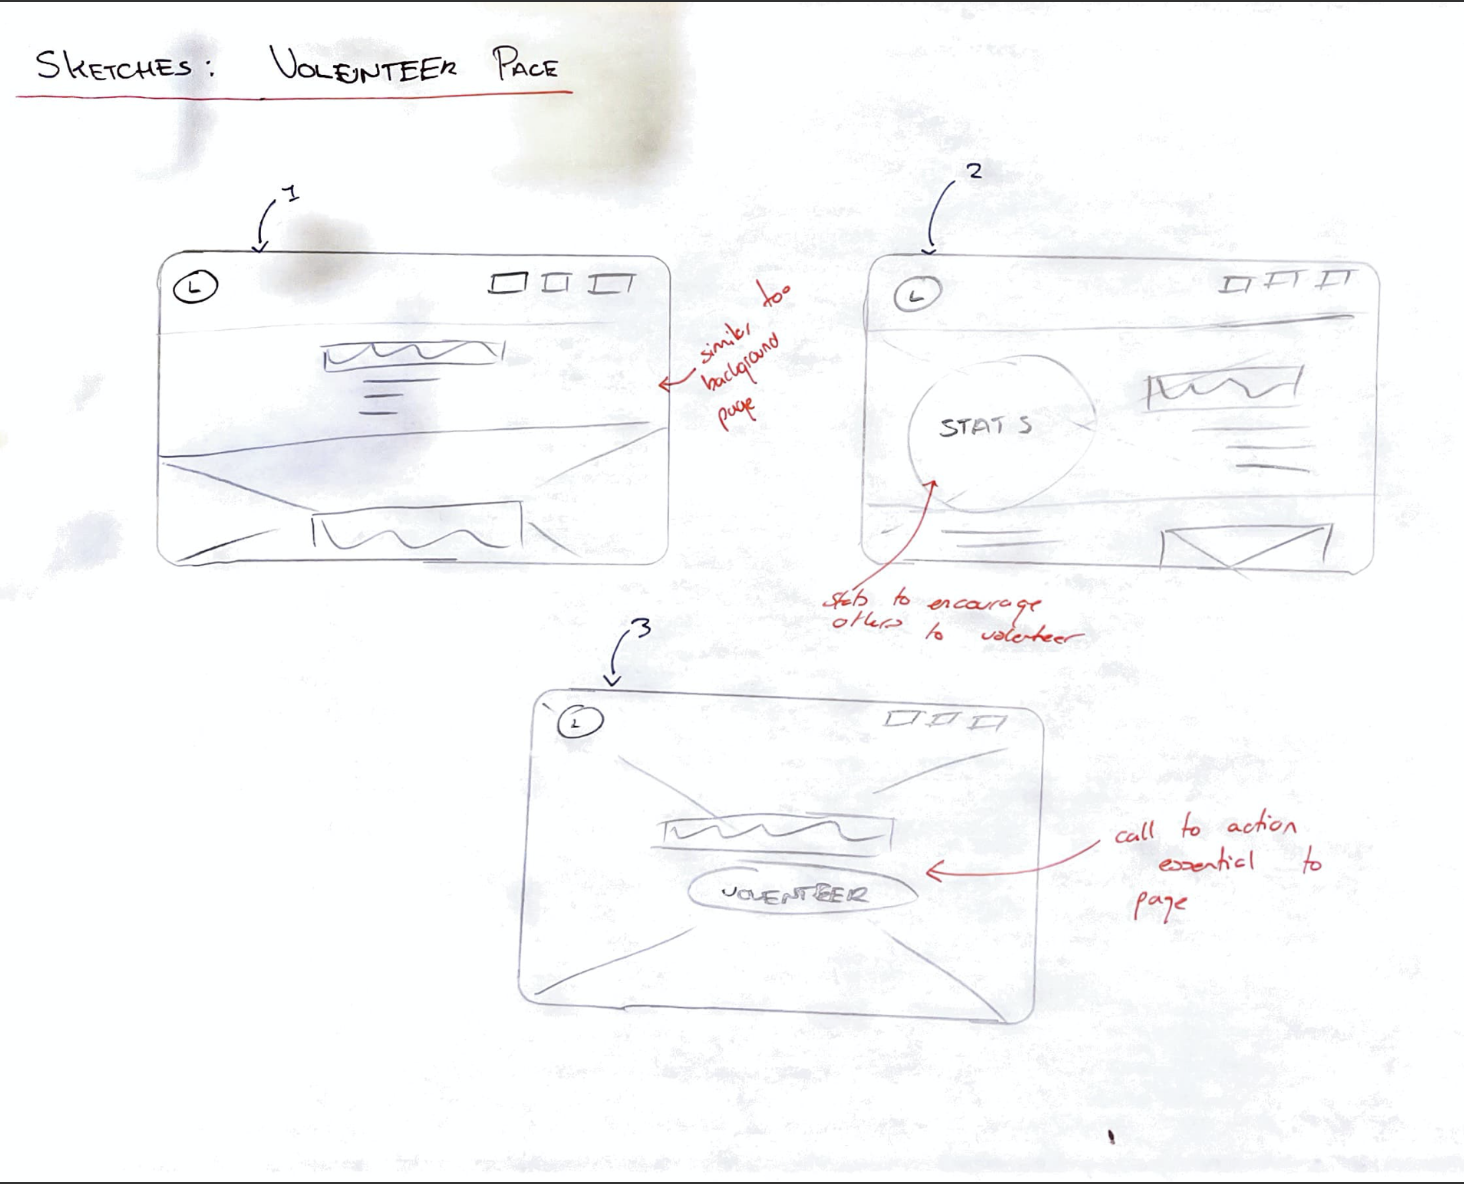 SKETCHES: VOLENTEER PAGE
1
L
too
similar
background
page
2
L
STATS
stats to encourage
others to volenteer
3
L
VOLENTEER
call to action
essential to
page